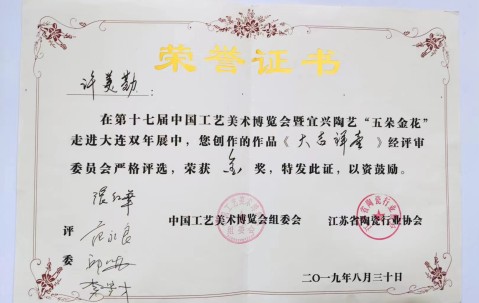 荣誉证书
许美勤:
在第十七届中国工艺美术博览会暨宜兴陶艺“五朵金花”
走进大连双年展中，您创作的作品《大吉祥壶》经评审
委员会严格评选，荣获金奖，特发此证，以资鼓励。
评委
中国工艺美术博览会组委会 江苏省陶瓷行业协会
二〇一九年八月三十日